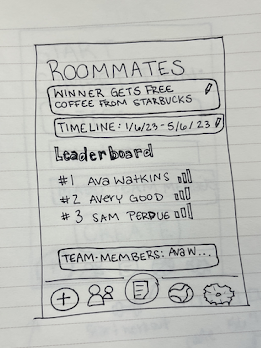 ROOMMATES
WINNER GETS FREE
COFFEE FROM STARBUCKS
TIMELINE: 1/6/23 - 5/6/23
Leaderboard
#1 AVA WATKINS
#2 AVERY GOOD
#3 SAM PERDUE
TEAM-MEMBERS: AVA W...